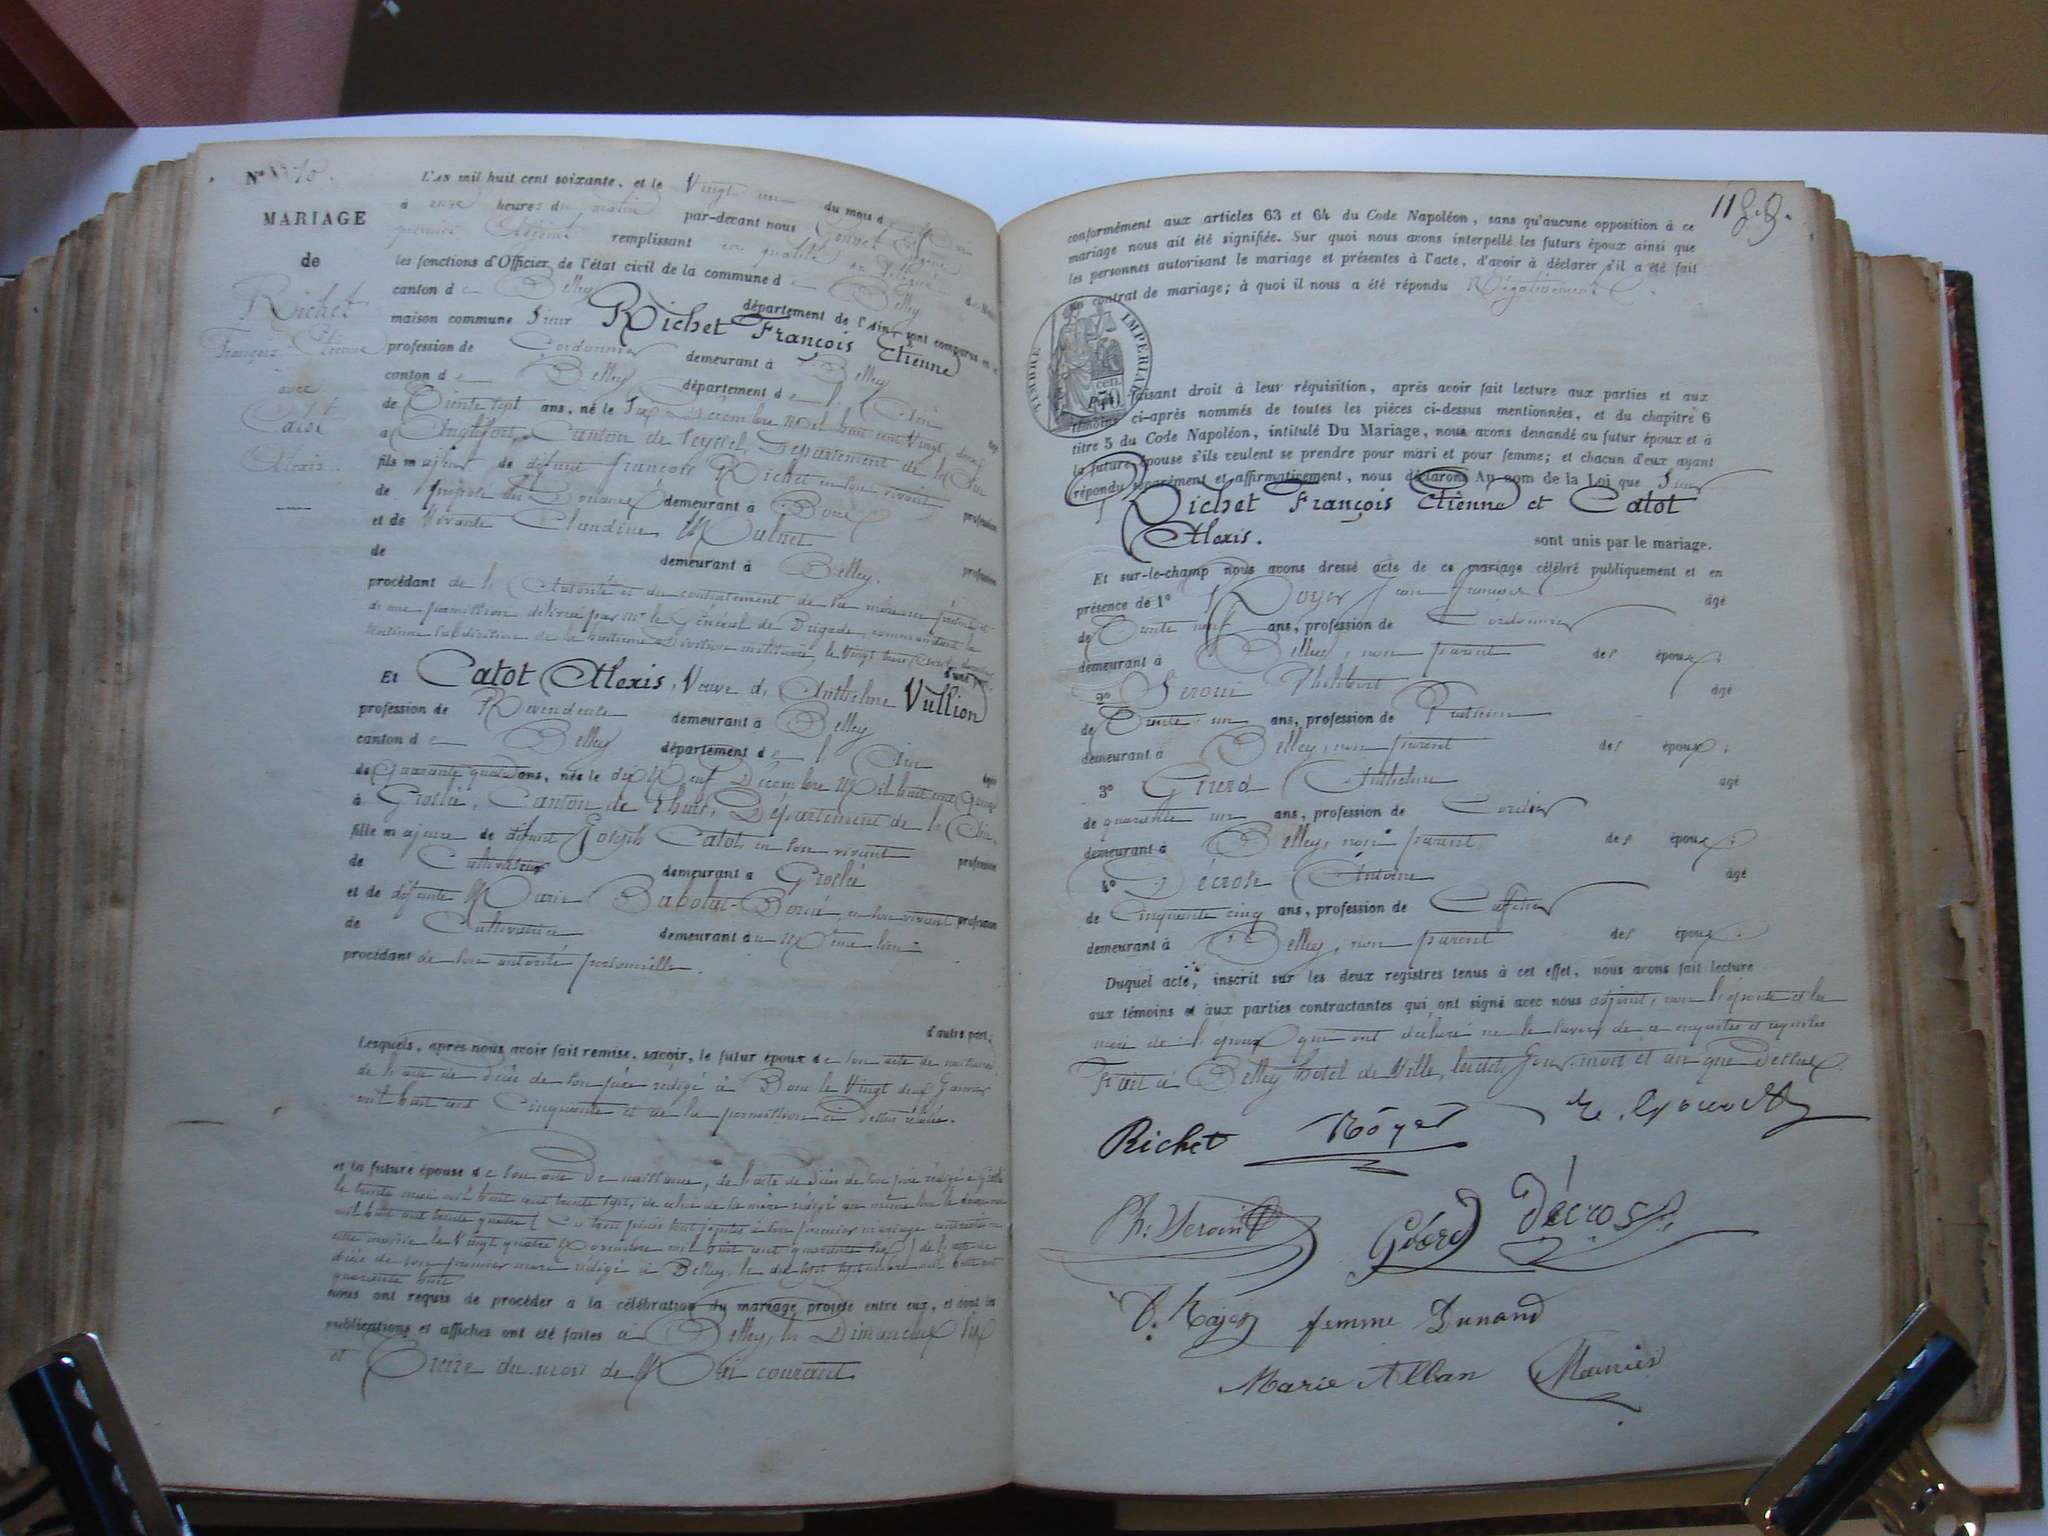 N° 10.
MARIAGE
de
Richet
François Etienne
avec
Catot
Alexis.
L'AN mil huit cent soixante, et le Vingt un du mois de Mai
à onze heures du matin par-devant nous
premier Adjoint remplissant en
les fonctions d'Officier de l'état civil de la commune de Belley
canton de Belley département de l'Ain sont comparus en
maison commune Sieur Richet François Etienne
profession de Cordonnier demeurant à Belley
canton de Belley département de l'Ain
de trente sept ans, né le Six Décembre Mil huit cent Vingt deux
à Anglefort, Canton de Seyssel, Département de l'Ain
fils majeur de défunt François Richet en son vivant profession
de préposé des Douanes demeurant à
et de vivante Claudine demeurant à Belley. profession
de
procédant de l'Autorité et du consentement de sa mère ici présente et
d'une permission délivrée par Mr le Général de Brigade, commandant la
subdivision de la huitième Division militaire, le Vingt
d'une part
Et Catot Alexis, Veuve d'Anthelme Vullion
profession de Revendeuse demeurant à Belley
canton de Belley département de l'Ain
de Quarante quatre ans, née le dix Neuf Décembre Mil huit cent Quinze
à Groslée, Canton de Lhuis, Département de l'Ain,
fille majeure de défunt Joseph Catot, en son vivant profession
de Cultivateur demeurant à Groslée
et de défunte Marie en son vivant profession
de Cultivatrice demeurant au Même lieu.
procédant de son autorité personnelle.
d'autre part.
Lesquels, après nous avoir fait remise, savoir, le futur époux de son acte de naissance,
de l'acte de Décès de son père rédigé à le Vingt deux Janvier
mil huit cent Cinquante et de la permission ci Dessus relatée.
et la future épouse de son acte De naissance, de l'acte de Décès de son père rédigé à Groslée
le trente mil huit cent trente sept, de celui de sa mère rédigé au même lieu le
mil huit cent trente quatre (Ces trois pièces sont jointes à son premier mariage contracté en
cette mairie le Vingt quatre Novembre mil huit cent quarante ) de l'acte de
décès de son premier mari rédigé à Belley, le dix sept Septembre mil huit cent
quarante huit
nous ont requis de procéder à la célébration du mariage projeté entre eux, et dont les
publications et affiches ont été faites à Belley, les Dimanches Six
et Treize du mois de Mai courant
118.
conformément aux articles 63 et 64 du Code Napoléon, sans qu'aucune opposition à ce
mariage nous ait été signifiée. Sur quoi nous avons interpellé les futurs époux ainsi que
les personnes autorisant le mariage et présentes à l'acte, d'avoir à déclarer s'il a été fait
un contrat de mariage; à quoi il nous a été répondu Négativement.
TIMBRE IMPERIAL
faisant droit à leur réquisition, après avoir fait lecture aux parties et aux
témoins ci-après nommés de toutes les pièces ci-dessus mentionnées, et du chapitre 6
titre 5 du Code Napoléon, intitulé Du Mariage, nous avons demandé au futur époux et à
la future épouse s'ils veulent se prendre pour mari et pour femme; et chacun d'eux ayant
répondu séparément et affirmativement, nous déclarons Au nom de la Loi que Sieur
Richet François Etienne et Catot
Alexis. sont unis par le mariage.
Et sur-le-champ nous avons dressé acte de ce mariage célébré publiquement et en
présence de 1° Royer Jean François âgé
de Trente neuf ans, profession de Cordonnier
demeurant à Belley, non parent des époux;
2° Seroin Philibert âgé
de Trente un ans, profession de Praticien
demeurant à Belley, non parent des époux;
3° Girerd Anthelme âgé
de quarante un ans, profession de Cordier
demeurant à Belley, non parent des époux;
4° Décros Antoine âgé
de Cinquante cinq ans, profession de Caffetier
demeurant à Belley, non parent des époux.
Duquel acte, inscrit sur les deux registres tenus à cet effet, nous avons fait lecture
aux témoins et aux parties contractantes qui ont signé avec nous adjoint, non l'épouse et la
mère de l'époux qui ont déclaré ne le savoir de ce enquises et requises
Fait à Belley hôtel de Ville, lesdits jour, mois et an que Dessus.
Richet Röyer
Ph. Seroin Girerd Décros
femme Dunand
Marie Alban